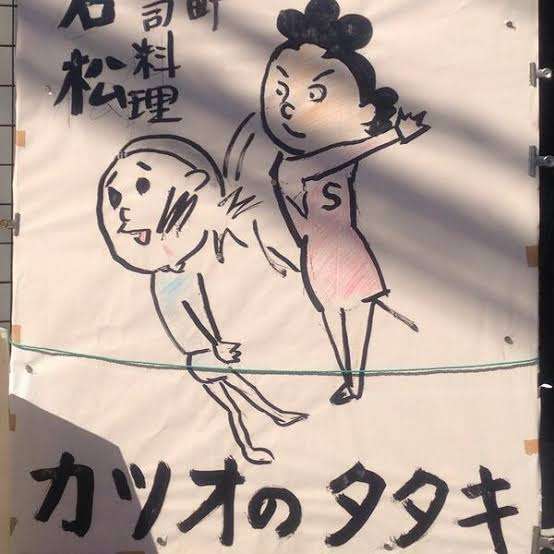 町
司料理
石松
S
カツオのタタキ